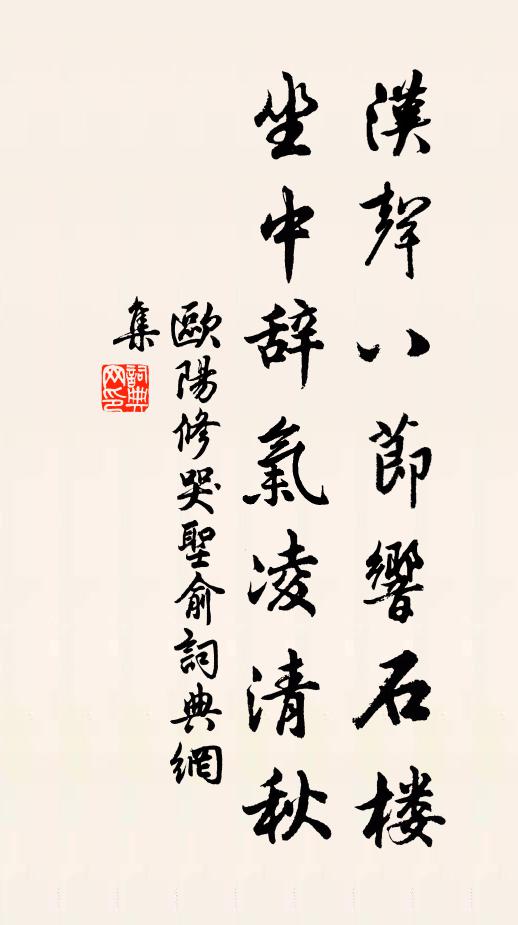 漢聲八節響石楼
坐中辞氣凌清秋
歐陽修哭聖俞詞典網
集
詞典
网印